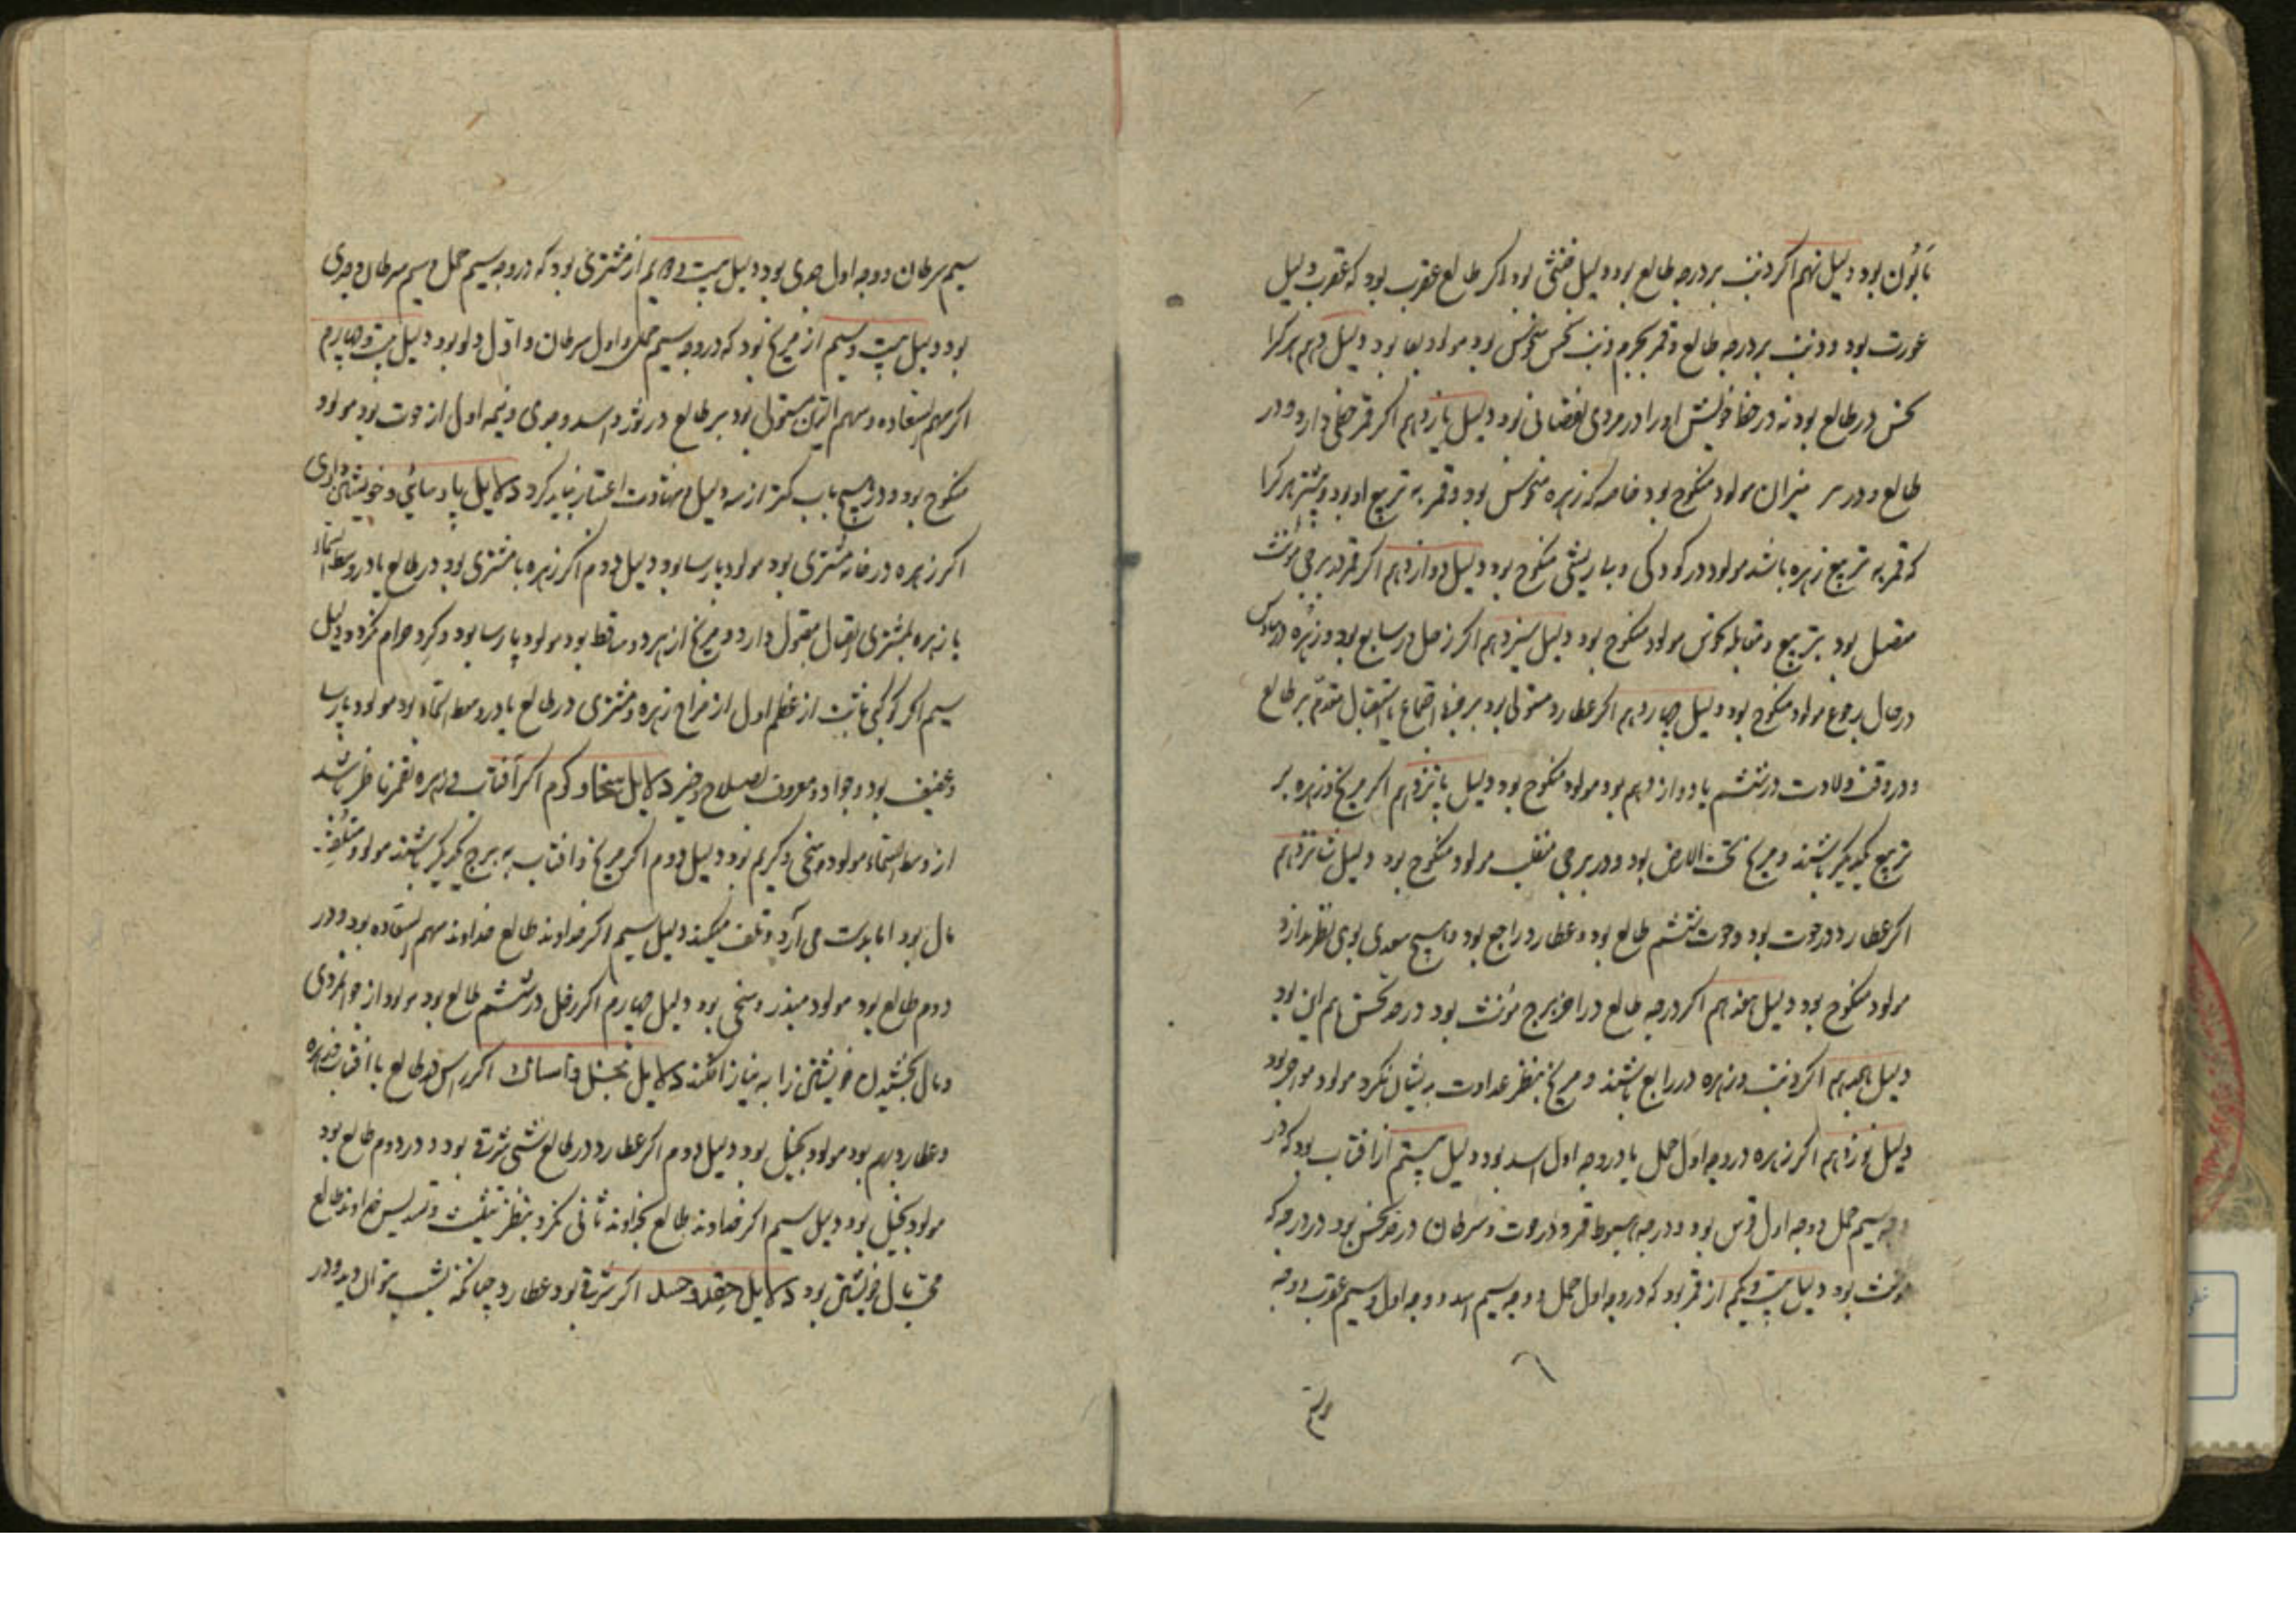 مأبون بود دلیل نهم اگر ذنب بر درجه طالع بود دلیل خنثی بود اگر طالع عقرب بود که عقرب دلیل
عورت بود و ذنب بر درجه طالع و قمر بجرم ذنب نحس منحوس بود مولود بود دلیل دهم هر کرا
نحس در طالع بود نه در خانه خویش او را در مردی نقصانی بود دلیل یازدهم اگر قمر حظی دارد و در
طالع و در سر میزان مولود منکوح بود خاصه که زهره منحوس بود و قمر به تربیع او بود و بیشتر هر کرا
که قمر به تربیع زهره باشد مولود در کودکی و بیاریشی منکوح بود دلیل دوازدهم اگر قمر در برجی مؤنث
متصل بود بتربیع و مقابله نحوس مولود منکوح بود دلیل سیزدهم اگر زحل در سابع بود و زهره در سادس
در حال رجوع مولود منکوح بود دلیل چهاردهم اگر عطارد مستولی بود بر جزء اجتماع یا استقبال مقدم بر طالع
و در وقت ولادت در ششم یا دوازدهم بود مولود منکوح بود دلیل پانزدهم اگر مریخ و زهره بر
تربیع یکدیگر باشند و مریخ تحت الارض بود و در برجی منقلب مولود منکوح بود دلیل شانزدهم
اگر عطارد در حوت بود و حوت ششم طالع بود و عطارد راجع بود و هیچ سعدی بوی نظر ندارد
مولود منکوح بود دلیل هفدهم اگر درجه طالع در آخر برج مؤنث بود در حد نحس هم این بود
دلیل هجدهم اگر ذنب و زهره در رابع باشند و مریخ بنظر عداوت بدیشان نگرد مولود مواجر بود
دلیل نوزدهم اگر زهره در وجه اول حمل یا در وجه اول اسد بود دلیل بیستم از آفتاب بود که در
وجه سیم حمل و وجه اول قوس بود و در درجه هبوط قمر و در حوت و سرطان در حد نحس بود در درجه که
مؤنث بود دلیل بیست و یکم از قمر بود که در وجه اول حمل و وجه سیم اسد و وجه اول و سیم عقرب و وجه
سیم سرطان و وجه اول جدی بود دلیل بیست و دویم از مشتری بود که در وجه سیم حمل و سیم سرطان و جدی
بود دلیل بیست و سیم از مریخ بود که در وجه سیم حمل و اول سرطان و اول دلو بود دلیل بیست و چهارم
اگر سهم السعاده و سهم مستولی بود بر طالع در ثور و اسد و جدی و نیمه اول از حوت بود مولود
منکوح بود و در هیچ باب کمتر از سه دلیل و شهادت اعتبار نباید کرد دلایل پارسائی و خویشتن داری
اگر زهره در خانه مشتری بود مولود پارسا بود دلیل دوم اگر زهره با مشتری بود در طالع یا در وسط السماء
یا زهره بمشتری اتصال مقبول دارد و مریخ از هر دو ساقط بود مولود پارسا بود و گرد حرام نگردد دلیل
سیم اگر کوکبی ثابت از عظم اول از مزاج زهره و مشتری در طالع یا در وسط السماء بود مولود پارسا
و عفیف بود و جواد و معروف بصلاح و خیر دلایل سخا و کرم اگر آفتاب و زهره بقمر ناظر باشد
از وسط السماء مولود سخی و کریم بود دلیل دوم اگر مریخ و آفتاب به برج یکدیگر باشند مولود متلف
مال بود اما بدست می آرد و تلف میکند دلیل سیم اگر خداوند طالع خداوند سهم السعاده بود و در
دوم طالع بود مولود مبذر و سخی بود دلیل چهارم اگر زحل در ششم طالع بود مولود از جوانمردی
و مال بخشیدن خویشتن را به نیاز افکند دلایل بخل و امساک اگر راس در طالع با آفتاب و زهره
و عطارد بهم بود مولود بخیل بود دلیل دوم اگر عطارد در طالع شبی شرقی بود و در دوم طالع بود
مولود بخیل بود دلیل سیم اگر خداوند طالع بخداوند ثانی نگرد بنظر تثلیث و تسدیس خداوند طالع
محب مال خویشتن بود دلایل حقد و حسد اگر شرقی بود عطارد چنانکه بشب بتوان دید و در